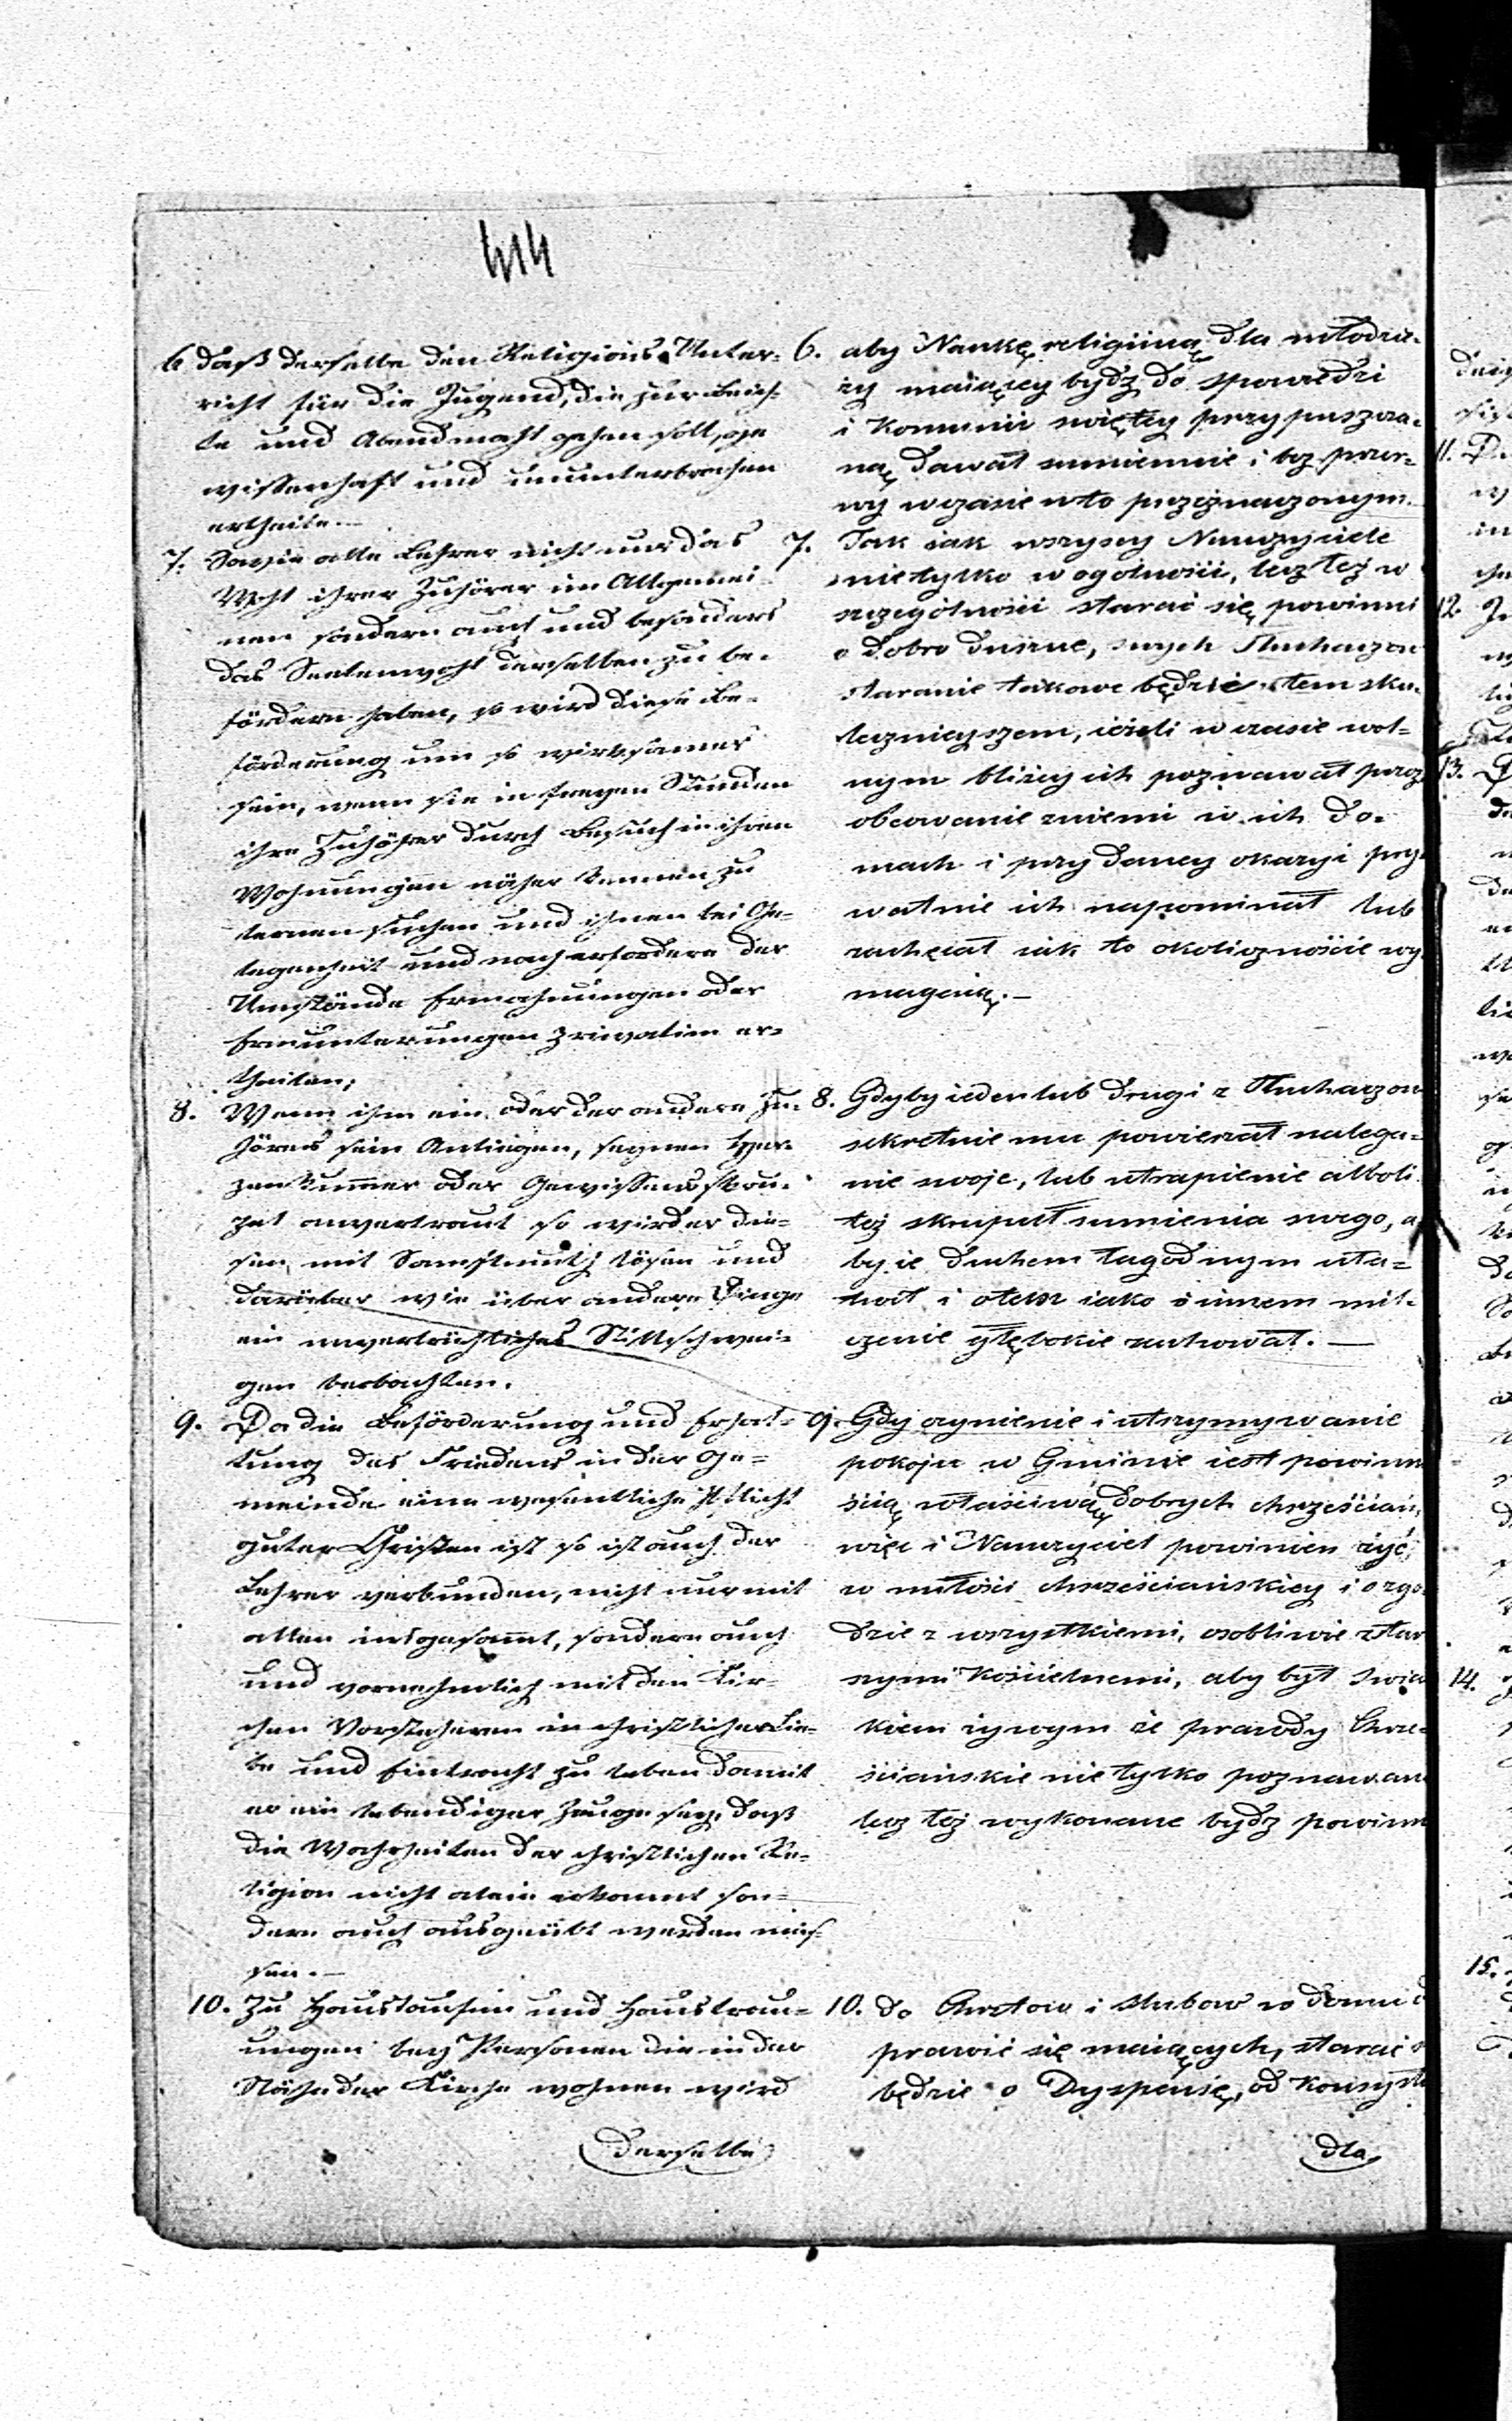 414
6. daß derselbe den Religions Unter-
richt für die Jugend, die zur Beich-
te und Abendmahl gehen soll, ge
wissenhaft und ununterbrochen
ertheile.—
7. Sowie alle Lehrer nicht nur das
Wohl ihrer Zuhörer im Allgemei-
nen sondern auch und besonders
das Seelenwohl derselben zu be-
fördern haben, so wird diese Be-
förderung um so wirksamer
sein, wenn sie in freyen Stunden
ihre Zuhörer durch Besuch in ihren
Wohnungen näher kennen zu
lernen suchen und ihnen bei Ge-
legenheit und nach erfordern der
Umstände Ermahnungen oder
Ermunterungen privatim er-
theilen;
8. Wenn ihm ein oder der andere Zu-
hörers sein Anliegen, seynen Her-
zenkummer oder Gewissensskru-
pel anvertraut so wird er die-
sen mit Sanftmuth lösen und
darüber wie über andere Dinge
ein unverbrüchliches Stillschwei-
gen beobachten.
9. Da die Beförderung und Erhal-
tung des Friedens in der Ge-
meinde eine wesentliche Pflicht
guter Christen ist so ist auch der
Lehrer verbunden, nicht nur mit
allen insgesamt, sondern auch
und vornehmlich mit den Kir-
chen Vorstehern in christlicher Lie-
be und Eintracht zu leben damit
er ein lebendiger Zeuge sey, daß
die Wahrheiten der christlichen Re-
ligion nicht alein erkannt son-
dern auch ausgeübt werden müs-
sen.—
10. Zu Haustaufen und Haustrau-
ungen bey Personen die in der
Nähe der Kirche wohnen wird
derselbe
6. aby Naukę religiiną dla młodzie-
ży maiącey bydz do spowiedzi
i Kommunii swiętey przypuszcza-
ną dawał sumiennie i bez przer-
wy w czasie wto przeznaczonym.
7. Tak iak wszyscy Nauczyciele
nie tylko w ogolności, lecz też w
szczególności starać się powinni
o dobro duszne, swych Słuchaczow
staranie takowe będzie tem sku-
tecznieyszem, ieżeli w czasie wol-
nym bliżey ich poznawał przez
obcowanie z niemi w ich do-
mach i przy daney okazyi pry-
watnie ich napominał lub
zachęcał iak to okoliczności wy
magaią.—
8. Gdyby ieden lub drugi z Słuchaczow
sekretnie mu powierzał nalega-
nie swoje, lub utrapienie alboli
też skrupuł sumienia swego, a
by ie duchem łagodnym uła-
twił i o tem iako o innem mil-
czenie głębokie zachował.—
9. Gdy czynienie i utrzymywanie
pokoju w Gminie iest powinno
ścią właściwą dobrych chrześcian,
więc i Nauczyciel powinien żyć,
w miłości chrześciańskiey i o zgo
dzie z wszystkiemi, osobliwie z star
szymi Kościelnemi, aby był świad
kiem żywym że prawdy Chrze-
sciańskie nie tylko poznawane
lecz też wykonane bydz powinn
10. do Chrztow i slubow w domu od
prawić się maiących, starać s
będzie o Dyspensię, od Konsyst
dla
11.
12.
13.
14.
15.